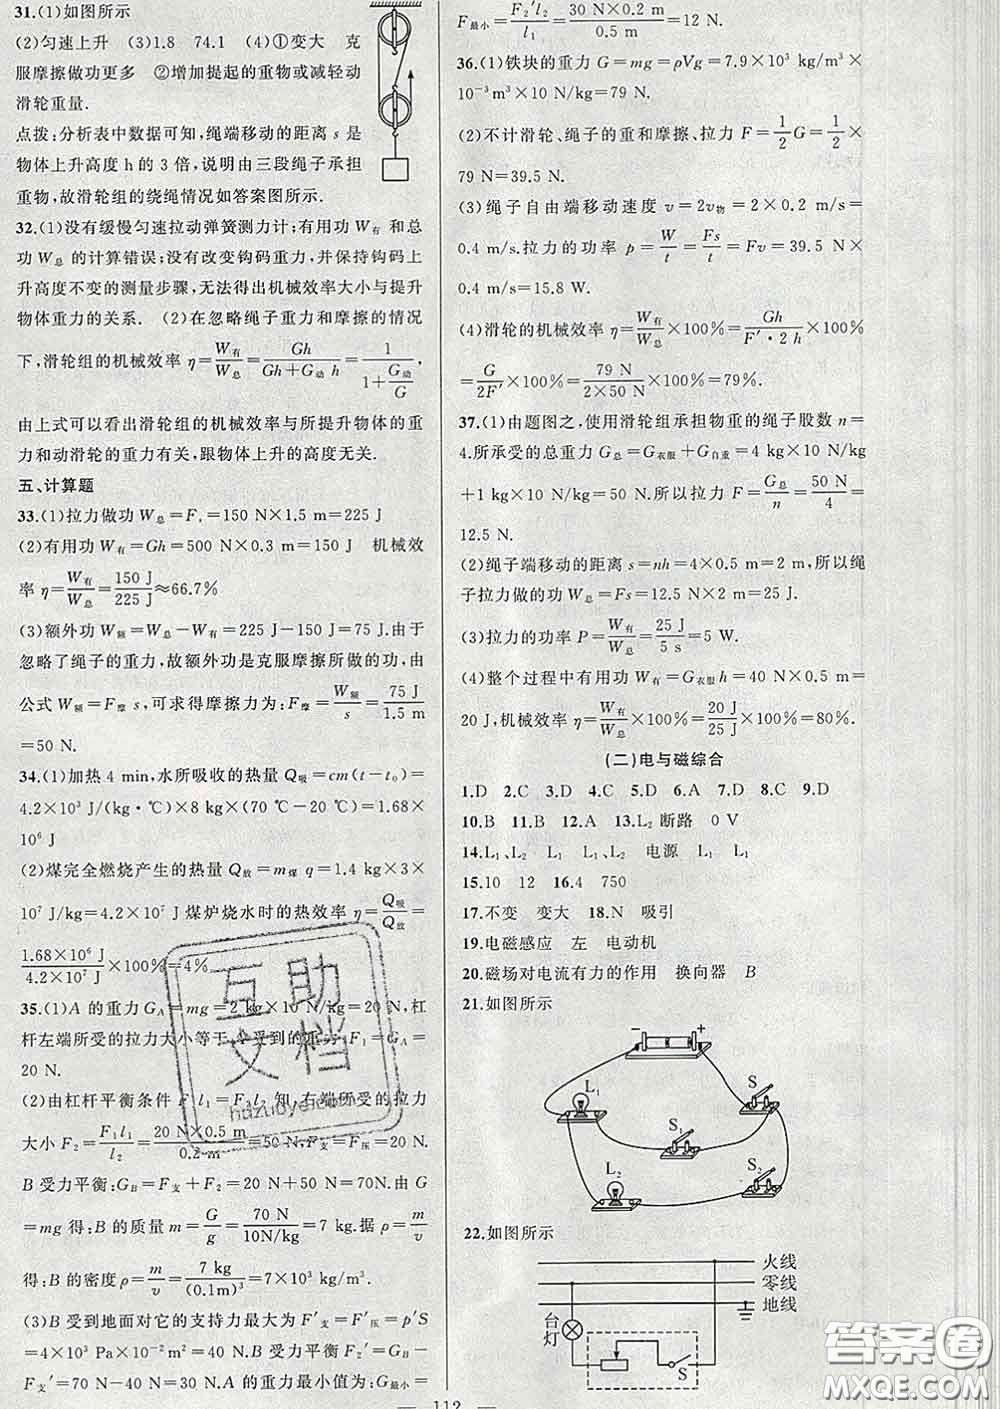 31.(1)如图所示
(2)匀速上升 (3)1.8 74.1 (4)①变大 克
服摩擦做功更多 ②增加提起的重物或减轻动
滑轮重量.
点拨:分析表中数据可知,绳端移动的距离 s 是
物体上升高度 h 的 3 倍,说明由三段绳子承担
重物,故滑轮组的绕绳情况如答案图所示.
32.(1)没有缓慢匀速拉动弹簧测力计;有用功 W有 和总
功 W总 的计算错误;没有改变钩码重力,并保持钩码上
升高度不变的测量步骤,无法得出机械效率大小与提升
物体重力的关系. (2)在忽略绳子重力和摩擦的情况
下,滑轮组的机械效率 η=W有/W总=Gh/(Gh+G动 h)=1/(1+G动/G),
由上式可以看出滑轮组的机械效率与所提升物体的重
力和动滑轮的重力有关,跟物体上升的高度无关.
五、计算题
33.(1)拉力做功 W总=Fs=150 N×1.5 m=225 J
(2)有用功 W有=Gh=500 N×0.3 m=150 J 机械效
率 η=W有/W总=150 J/225 J≈66.7%
(3)额外功 W额=W总-W有=225 J-150 J=75 J.由于
忽略了绳子的重力,故额外功是克服摩擦所做的功,由
公式 W额=F摩 s,可求得摩擦力为:F摩=W额/s=75 J/1.5 m
=50 N.
34.(1)加热 4 min,水所吸收的热量 Q吸=cm(t-t₀)=
4.2×10³ J/(kg·℃)×8 kg×(70 ℃-20 ℃)=1.68×
10⁶ J
(2)煤完全燃烧产生的热量 Q放=m煤 q=1.4 kg×3×
10⁷ J/kg=4.2×10⁷ J 煤炉烧水时的热效率 η=Q吸/Q放=
1.68×10⁶ J/4.2×10⁷ J×100%=4%
35.(1)A 的重力 GA=mg=2 kg×10 N/kg=20 N,杠
杆左端所受的拉力大小等于 A 受到的重力 F₁=GA=
20 N.
(2)由杠杆平衡条件 F₁l₁=F₂l₂ 知,右端所受的拉力
大小 F₂=F₁l₁/l₂=20 N×0.5 m/0.2 m=50 N,F支=F压=20 N.
B 受力平衡:GB=F支+F₂=20 N+50 N=70N.由 G
=mg 得:B 的质量 m=G/g=70 N/10N/kg=7 kg.据 ρ=m/v
得:B 的密度 ρ=m/v=7 kg/(0.1m)³=7×10³ kg/m³.
(3)B 受到地面对它的支持力最大为 F′支=F′压=p′S
=4×10³ Pa×10⁻²m²=40 N.B 受力平衡 F₂′=GB-
F支′=70 N-40 N=30 N.A 的重力最小值为:G最小=
F最小=F₂′l₂/l₁=30 N×0.2 m/0.5 m=12 N.
36.(1)铁块的重力 G=mg=ρVg=7.9×10³ kg/m³×
10⁻³m³×10 N/kg=79 N.
(2)不计滑轮、绳子的重和摩擦、拉力 F=1/2 G=1/2×
79 N=39.5 N.
(3)绳子自由端移动速度 v=2v物=2×0.2 m/s=
0.4 m/s,拉力的功率 p=W/t=Fs/t=Fv=39.5 N×
0.4 m/s=15.8 W.
(4)滑轮的机械效率 η=W有/W总×100%=Gh/F′·2h×100%
=G/2F′×100%=79 N/2×50 N×100%=79%.
37.(1)由题图之,使用滑轮组承担物重的绳子股数 n=
4.所承受的总重力 G总=G衣服+G自重=4 kg×10 N/kg
+1 kg×10 N/kg=50 N.所以拉力 F=G总/n=50 N/4=
12.5 N.
(2)绳子端移动的距离 s=nh=4×0.5 m=2 m,所以绳
子拉力做的功 W总=Fs=12.5 N×2 m=25 J.
(3)拉力的功率 P=W有/W总=25 J/5 s=5 W.
(4)整个过程中有用功 W有=G衣服h=40 N×0.5 m=
20 J,机械效率 η=W有/W总×100%=20 J/25 J×100%=80%.
(二)电与磁综合
1.D 2.C 3.D 4.C 5.D 6.A 7.D 8.C 9.D
10.B 11.B 12.A 13.L₂ 断路 0 V
14.L₁、L₂ L₁ L₁ L₂ 电源 L₁ L₁
15.10 12 16.4 750
17.不变 变大 18.N 吸引
19.电磁感应 左 电动机
20.磁场对电流有力的作用 换向器 B
21.如图所示
- +
L₁ S
S₁
L₂ S₂
22.如图所示
火线
零线
地线
台灯
S
112
互助文档
答案圈
MXQE.COM